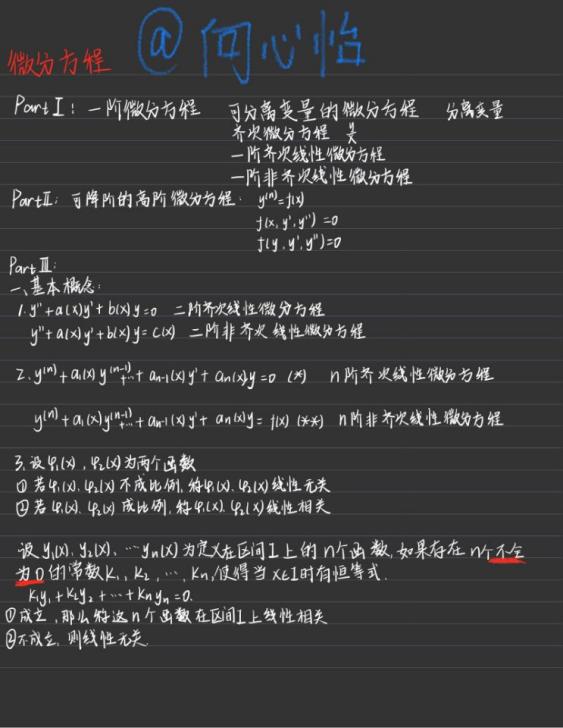 @何心怡
微分方程
Part I：一阶微分方程 可分离变量的微分方程 分离变量
齐次微分方程 y/x
一阶齐次线性微分方程
一阶非齐次线性微分方程
Part II：可降阶的高阶微分方程： y⁽ⁿ⁾=f(x)
f(x,y',y'')=0
f(y,y',y'')=0
Part III：
一、基本概念：
1. y''+a(x)y'+b(x)y=0 二阶齐次线性微分方程
y''+a(x)y'+b(x)y=c(x) 二阶非齐次线性微分方程
2. y⁽ⁿ⁾+a₁(x)y⁽ⁿ⁻¹⁾+…+aₙ₋₁(x)y'+aₙ(x)y=0 (*) n阶齐次线性微分方程
y⁽ⁿ⁾+a₁(x)y⁽ⁿ⁻¹⁾+…+aₙ₋₁(x)y'+aₙ(x)y=f(x) (**) n阶非齐次线性微分方程
3. 设φ₁(x),φ₂(x)为两个函数
①若φ₁(x)、φ₂(x)不成比例，称φ₁(x)、φ₂(x)线性无关
②若φ₁(x)、φ₂(x)成比例，称φ₁(x)、φ₂(x)线性相关
设y₁(x)，y₂(x)，…yₙ(x)为定义在区间I上的n个函数，如果存在n个不全
为0的常数k₁，k₂，…，kₙ，使得当x∈I时有恒等式.
k₁y₁+k₂y₂+…+kₙyₙ=0.
①成立，那么称这n个函数在区间I上线性相关
②不成立，则线性无关